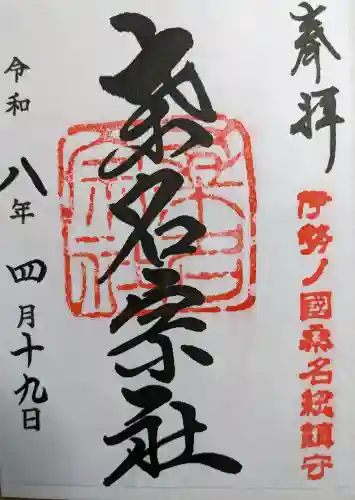 奉拝
伊勢ノ國桑名総鎮守
桑名宗社
令和八年四月十九日